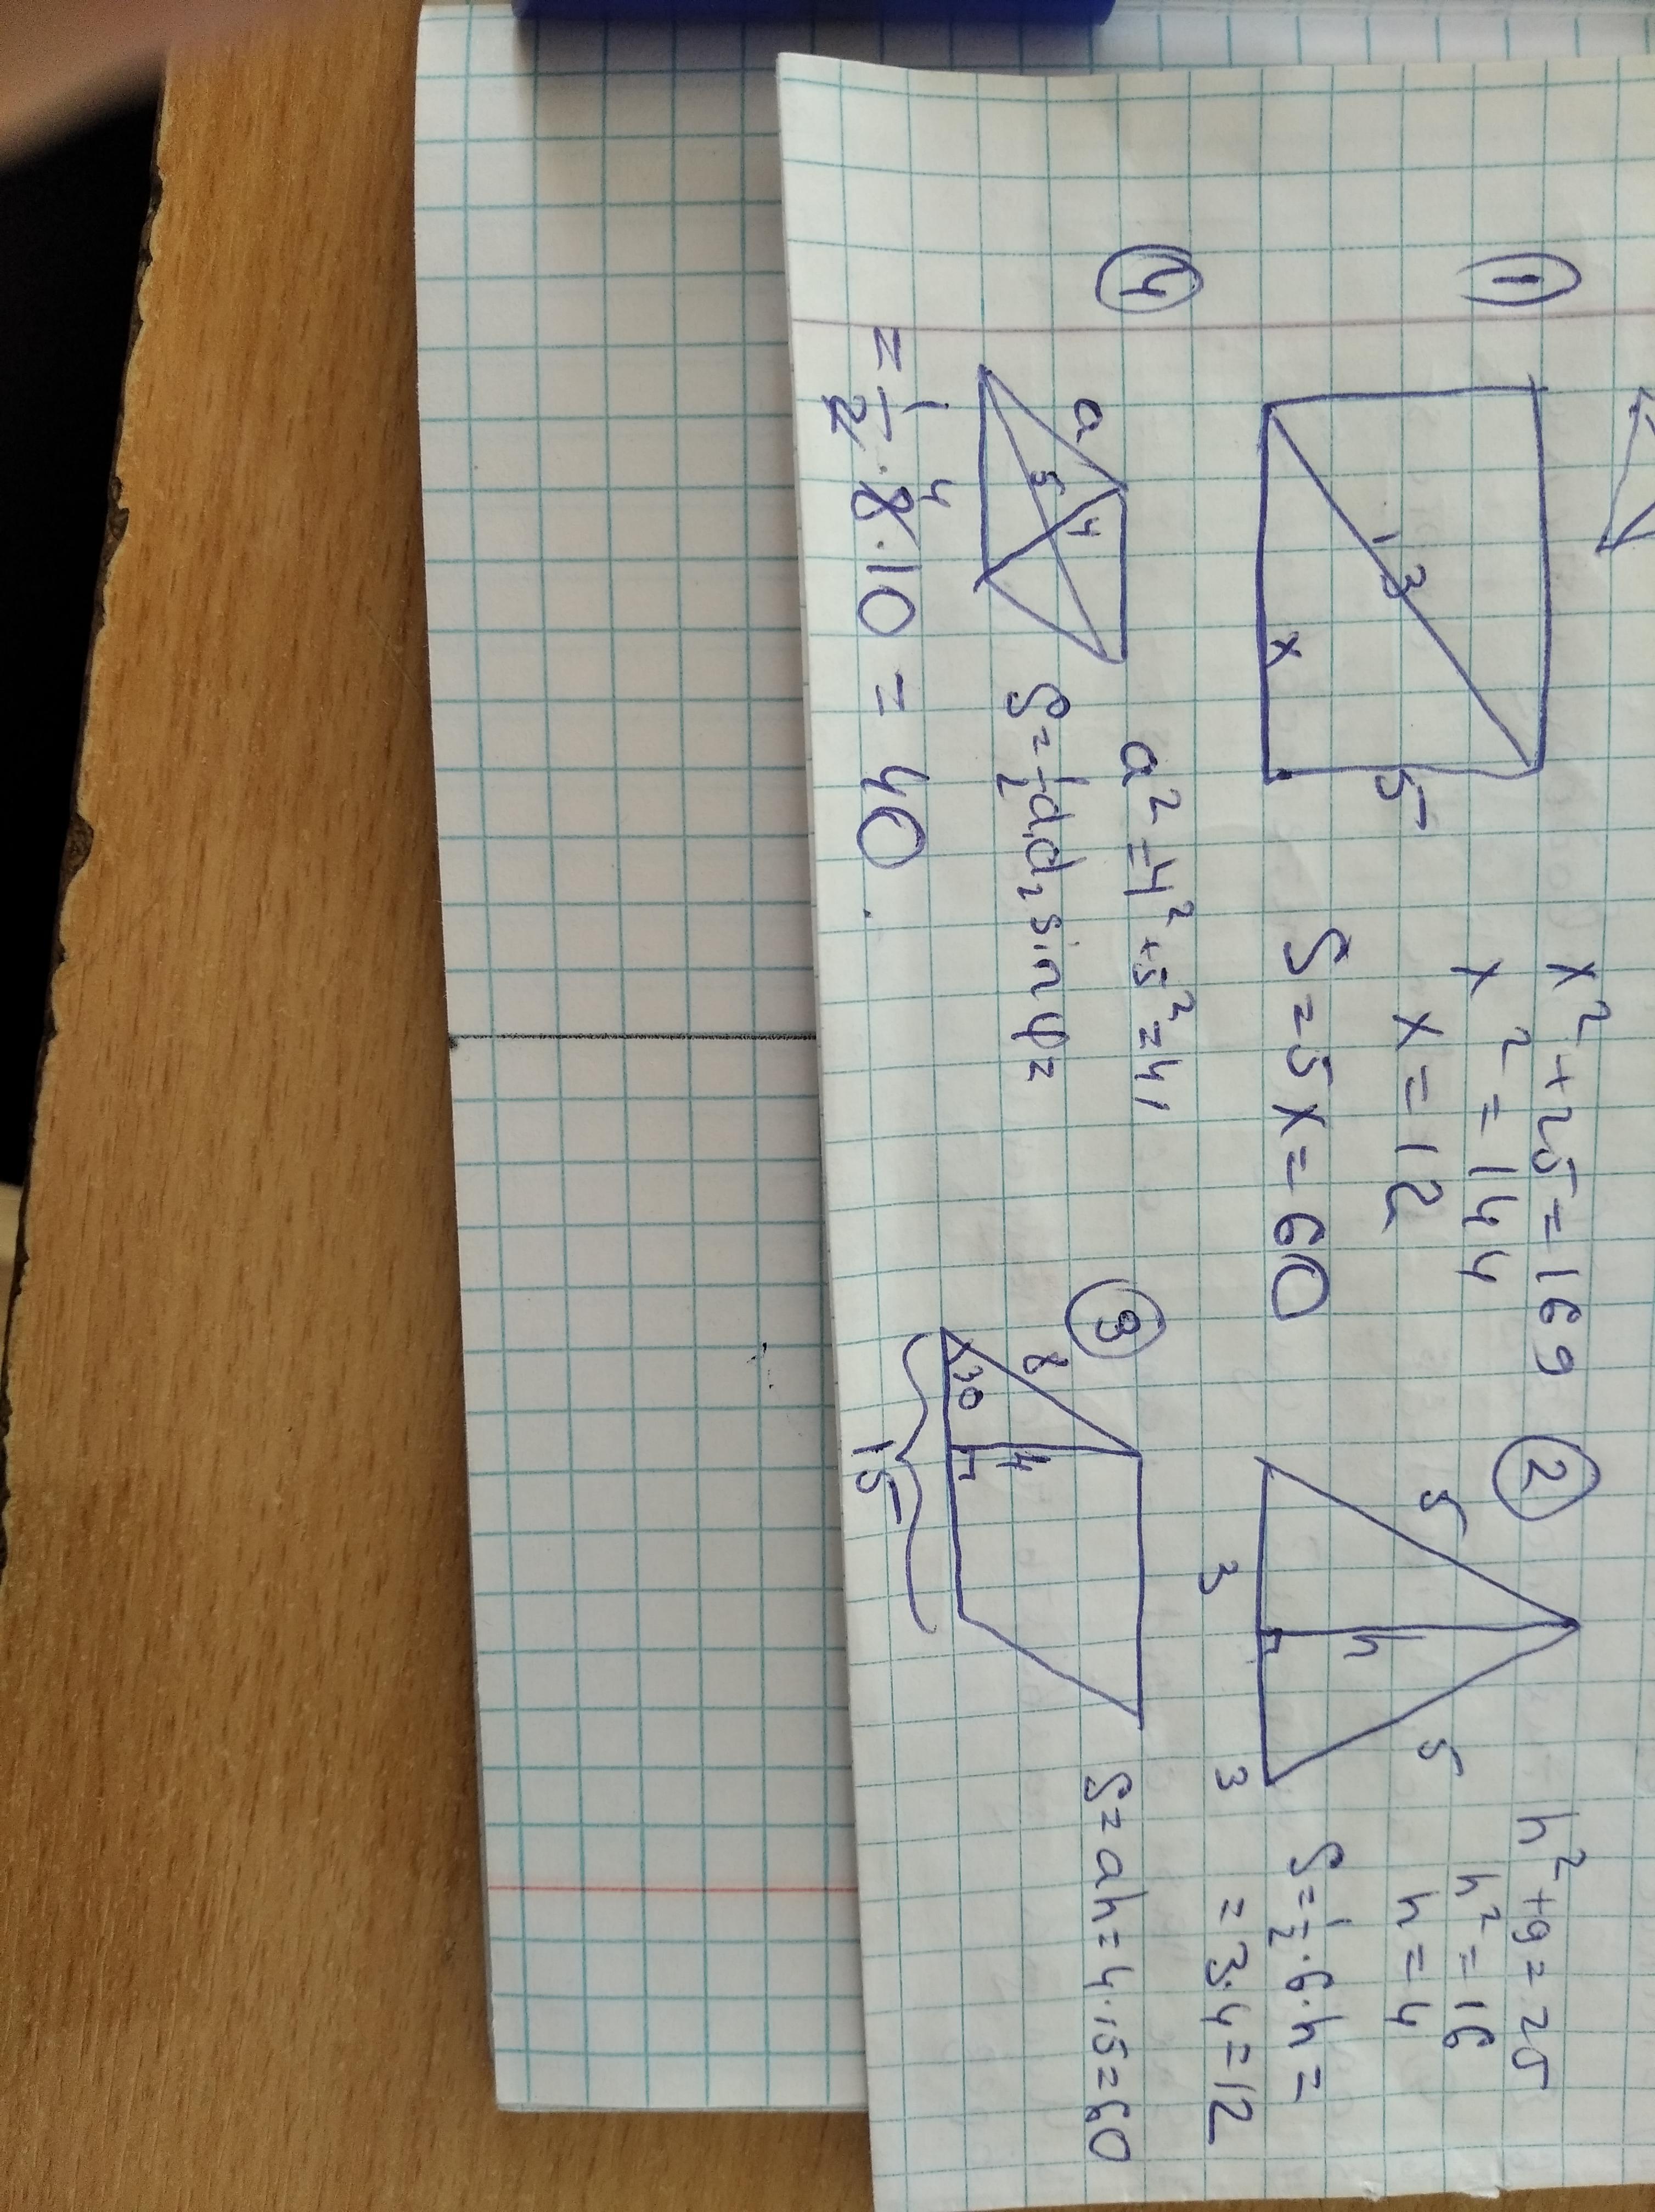 ①
13
x
5
x² + 25 = 169
x² = 144
x = 12
S = 5x = 60
②
5
5
h
3
3
h² + 9 = 25
h² = 16
h = 4
S = 1/2 · 6 · h =
= 3 · 4 = 12
④
a
5
4
a² = 4² + 5² = 41
S = 1/2 d₁d₂ sin φ =
= 1/2 · 8 · 10 = 40.
4
③
8
30
4
15
S = ah = 4 · 15 = 60